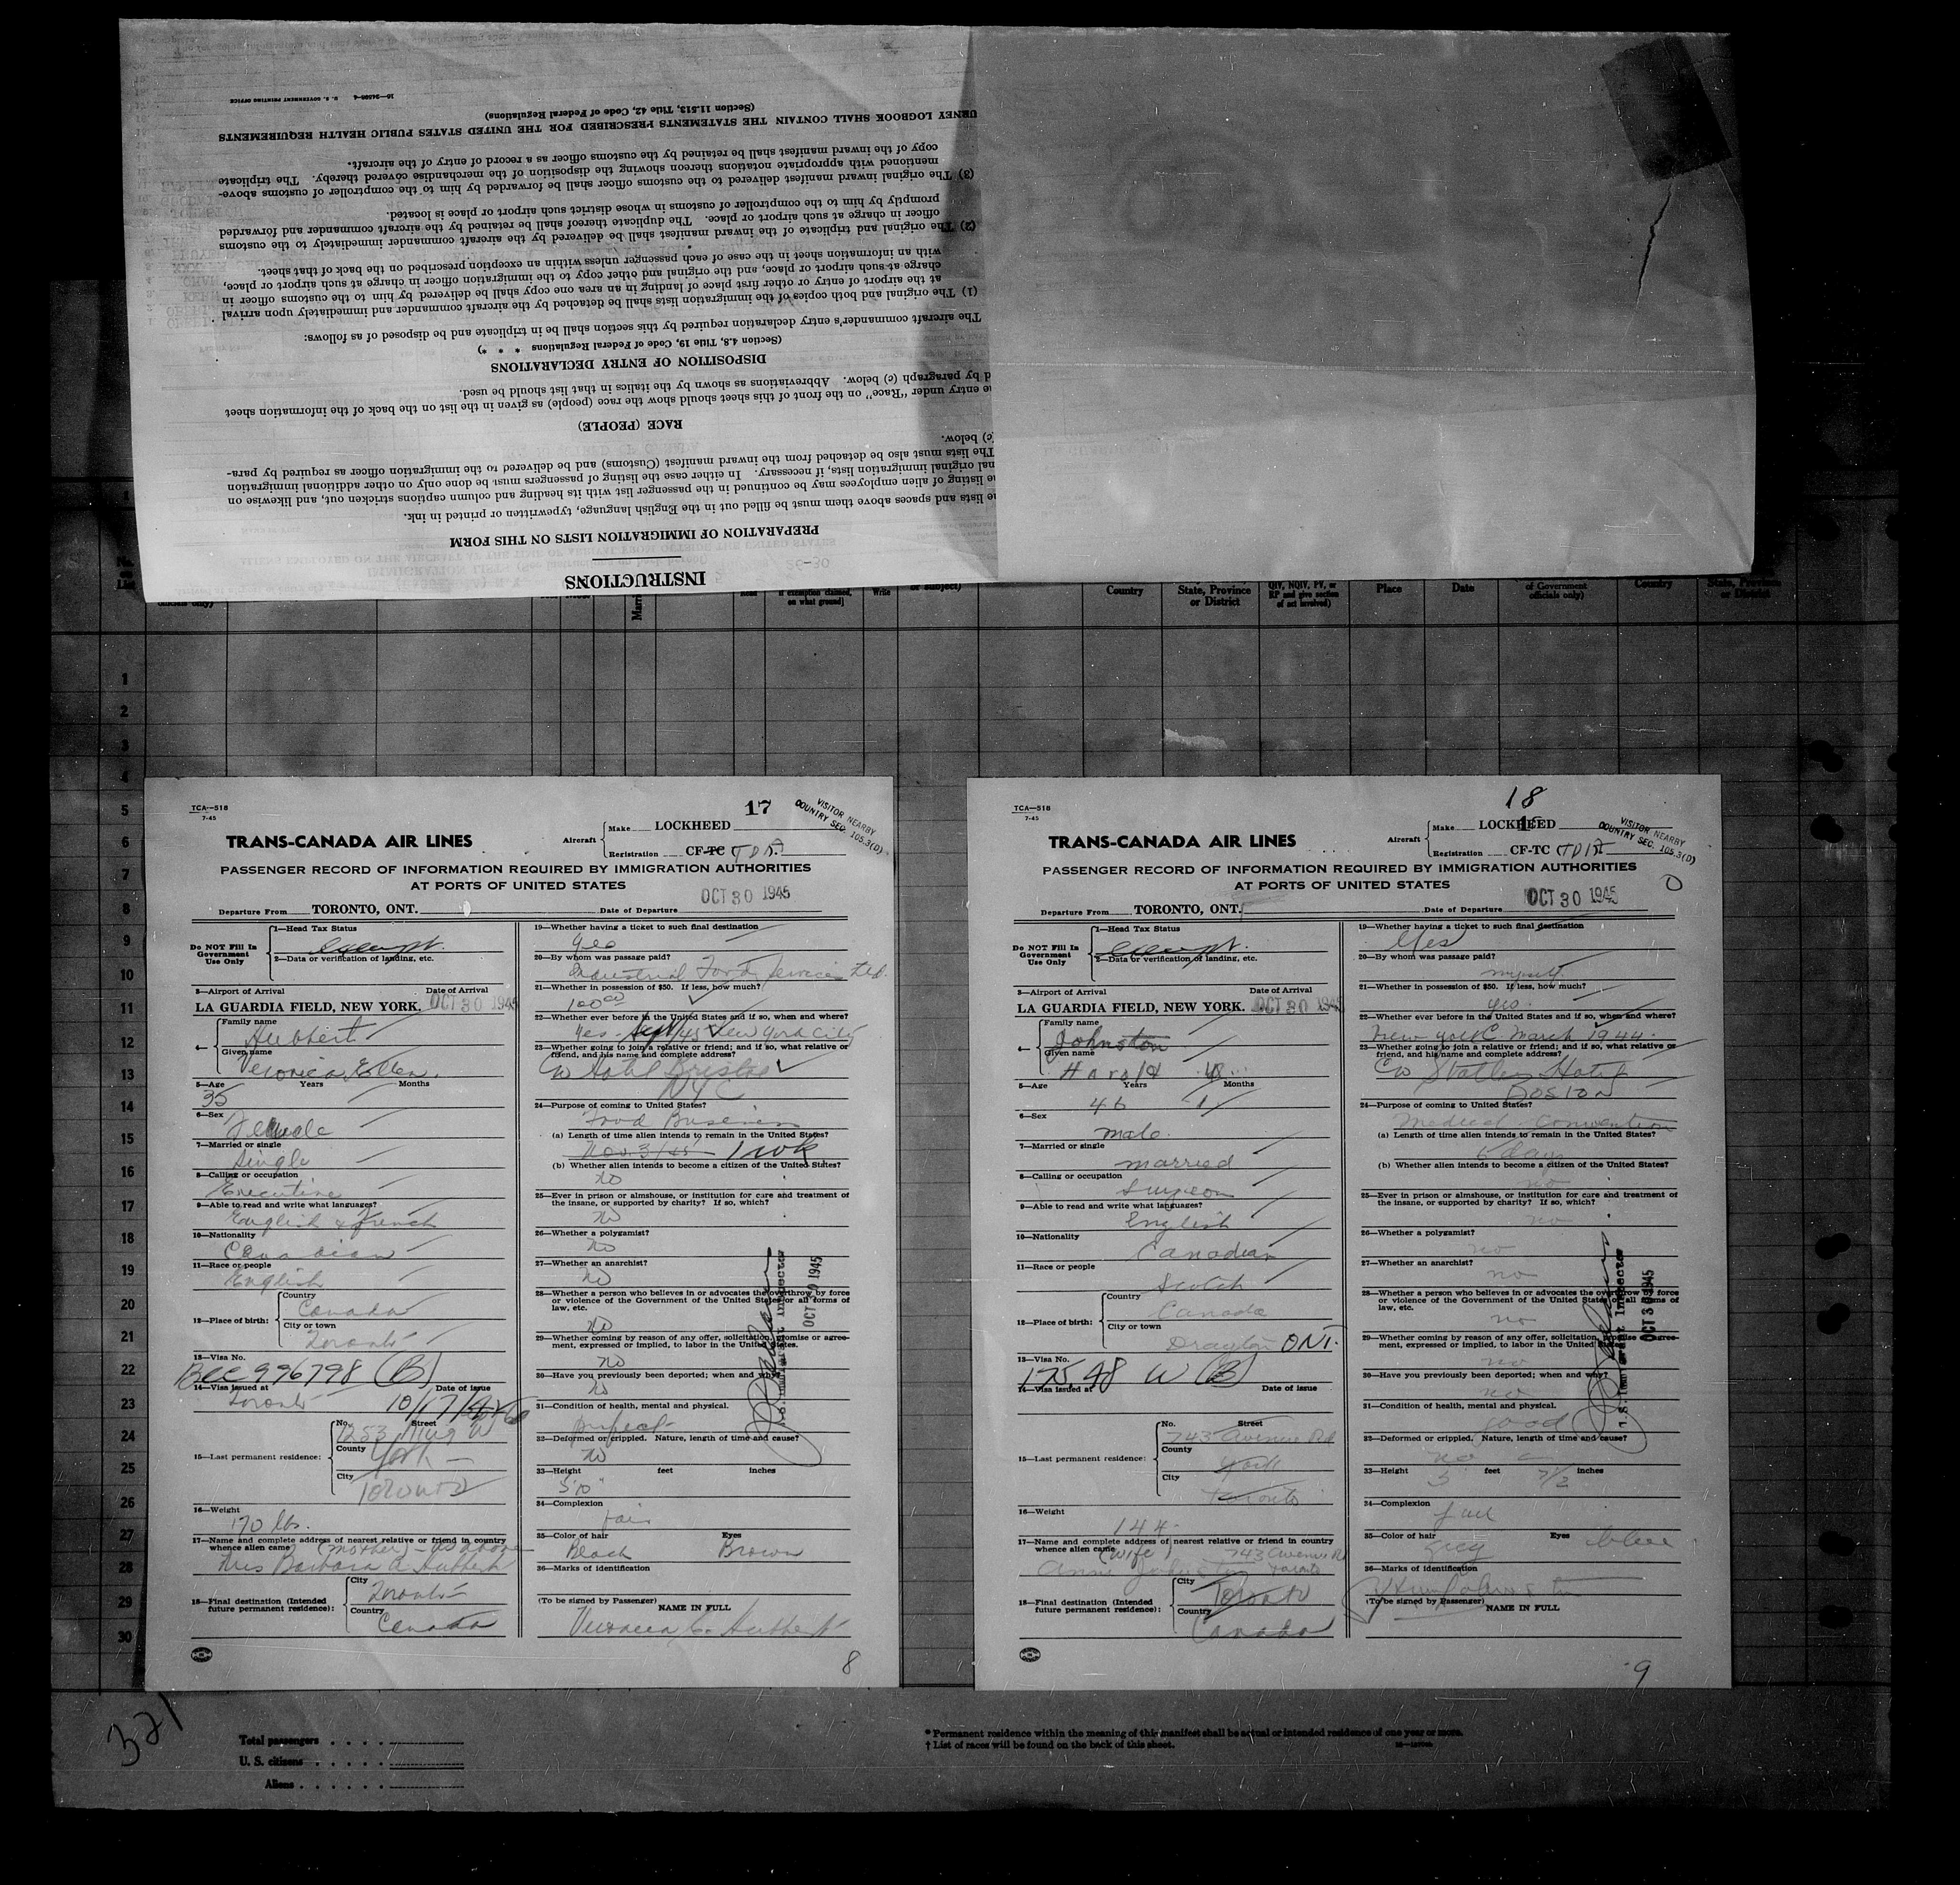 INSTRUCTIONS
PREPARATION OF IMMIGRATION LISTS ON THIS FORM
he lists and spaces above them must be filled out in the English language, typewritten or printed in ink.
he listing of alien employees may be continued in the passenger list with its heading and column captions stricken out, and likewise on
nal original immigration lists, if necessary. In either case the listing of passengers must be done only on other additional immigration
The lists must also be detached from the inward manifest (Customs) and be delivered to the immigration officer as required by para-
(c) below.
RACE (PEOPLE)
he entry under "Race" on the front of this sheet should show the race (people) as given in the list on the back of the information sheet
d by paragraph (c) below. Abbreviations as shown by the italics in that list should be used.
DISPOSITION OF ENTRY DECLARATIONS
(Section 4.8, Title 19, Code of Federal Regulations * * *)
The aircraft commander's entry declaration required by this section shall be in triplicate and be disposed of as follows:
(1) The original and both copies of the immigration lists shall be detached by the aircraft commander and immediately upon arrival
at the airport of entry or other first place of landing in an area one copy shall be delivered by him to the customs officer in
charge at such airport or place, and the original and other copy to the immigration officer in charge at such airport or place,
with an information sheet in the case of each passenger unless within an exception prescribed on the back of that sheet.
(2) The original and triplicate of the inward manifest shall be delivered by the aircraft commander immediately to the customs
officer in charge at such airport or place. The duplicate thereof shall be retained by the aircraft commander and forwarded
promptly by him to the comptroller of customs in whose district such airport or place is located.
(3) The original inward manifest delivered to the customs officer shall be forwarded by him to the comptroller of customs above-
mentioned with appropriate notations thereon showing the disposition of the merchandise covered thereby. The triplicate
copy of the inward manifest shall be retained by the customs officer as a record of entry of the aircraft.
URNEY LOGBOOK SHALL CONTAIN THE STATEMENTS PRESCRIBED FOR THE UNITED STATES PUBLIC HEALTH REQUIREMENTS
(Section 11.513, Title 42, Code of Federal Regulations)
U. S. GOVERNMENT PRINTING OFFICE
No. on List
officials only)
Write
or subject)
Country
State, Province or District
QIV, NQIV, PV, or RP and give section of act involved)
Place
Date
of Government officials only)
Country
State, Province or District
1
2
3
4
5
6
7
8
9
10
11
12
13
14
15
16
17
18
19
20
21
22
23
24
25
26
27
28
29
30
TCA—518
7-45
17
VISITOR NEARBY
COUNTRY SEC. 105.3(D)
TRANS-CANADA AIR LINES
Aircraft
Make LOCKHEED
Registration CF-TC TDA
PASSENGER RECORD OF INFORMATION REQUIRED BY IMMIGRATION AUTHORITIES
AT PORTS OF UNITED STATES
OCT 30 1945
Departure From TORONTO, ONT. Date of Departure
Do NOT Fill In Government Use Only
1—Head Tax Status
exempt
2—Data or verification of landing, etc.
3—Airport of Arrival Date of Arrival
LA GUARDIA FIELD, NEW YORK. OCT 30 1945
4— Family name
Hubbert
Given name
Veronica Ellen.
5—Age Years Months
35
6—Sex
Female
7—Married or single
Single
8—Calling or occupation
Executive
9—Able to read and write what languages?
English & French
10—Nationality
Canadian
11—Race or people
English
12—Place of birth:
Country
Canada
City or town
Toronto
13—Visa No.
BCC 996798 (B)
14—Visa issued at Date of issue
Toronto 10/17/45
15—Last permanent residence:
No. Street
1253 King W
County
York
City
Toronto
16—Weight
170 lbs.
17—Name and complete address of nearest relative or friend in country
whence alien came (Mother) - as above
Mrs Barbara A. Hubbert
18—Final destination (Intended future permanent residence):
City
Toronto
Country
Canada
19—Whether having a ticket to such final destination
Yes
20—By whom was passage paid?
Industrial Food Services Ltd.
21—Whether in possession of $50. If less, how much?
100.00
22—Whether ever before in the United States and if so, when and where?
Yes - Sept/45 New York City
23—Whether going to join a relative or friend; and if so, what relative or
friend, and his name and complete address?
Hotel Bristol
NYC
24—Purpose of coming to United States?
Food Business
(a) Length of time alien intends to remain in the United States?
Nov 3/45 1 wk
(b) Whether alien intends to become a citizen of the United States?
No
25—Ever in prison or almshouse, or institution for care and treatment of
the insane, or supported by charity? If so, which?
No
26—Whether a polygamist?
No
27—Whether an anarchist?
No
28—Whether a person who believes in or advocates the overthrow by force
or violence of the Government of the United States or all forms of
law, etc.
No
29—Whether coming by reason of any offer, solicitation, promise or agree-
ment, expressed or implied, to labor in the United States.
No
30—Have you previously been deported; when and why?
No
31—Condition of health, mental and physical.
perfect
32—Deformed or crippled. Nature, length of time and cause?
No
33—Height feet inches
5'10"
34—Complexion
fair
35—Color of hair Eyes
Black Brown
36—Marks of identification
(To be signed by Passenger) NAME IN FULL
Veronica E. Hubbert
U.S. Immigrant Inspector
OCT 30 1945
8
TCA—518
7-45
18
VISITOR NEARBY
COUNTRY SEC. 105.3(D)
TRANS-CANADA AIR LINES
Aircraft
Make LOCKHEED
Registration CF-TC TDA
PASSENGER RECORD OF INFORMATION REQUIRED BY IMMIGRATION AUTHORITIES
AT PORTS OF UNITED STATES
OCT 30 1945
Departure From TORONTO, ONT. Date of Departure
Do NOT Fill In Government Use Only
1—Head Tax Status
exempt
2—Data or verification of landing, etc.
3—Airport of Arrival Date of Arrival
LA GUARDIA FIELD, NEW YORK. OCT 30 1945
4— Family name
Johnston
Given name
Harold
5—Age Years Months
46 1
6—Sex
male
7—Married or single
married
8—Calling or occupation
Surgeon
9—Able to read and write what languages?
English
10—Nationality
Canadian
11—Race or people
Scotch
12—Place of birth:
Country
Canada
City or town
Drayton ONT.
13—Visa No.
175.48 W (B)
14—Visa issued at Date of issue
15—Last permanent residence:
No. Street
743 Avenue Rd
County
York
City
Toronto
16—Weight
144
17—Name and complete address of nearest relative or friend in country
whence alien came (wife) 743 Avenue Rd
Toronto
18—Final destination (Intended future permanent residence):
City
Toronto
Country
Canada
19—Whether having a ticket to such final destination
Yes
20—By whom was passage paid?
myself
21—Whether in possession of $50. If less, how much?
yes
22—Whether ever before in the United States and if so, when and where?
New York C March 1944
23—Whether going to join a relative or friend; and if so, what relative or
friend, and his name and complete address?
Statler Hotel
Boston
24—Purpose of coming to United States?
Medical Convention
(a) Length of time alien intends to remain in the United States?
6 days
(b) Whether alien intends to become a citizen of the United States?
no
25—Ever in prison or almshouse, or institution for care and treatment of
the insane, or supported by charity? If so, which?
no
26—Whether a polygamist?
no
27—Whether an anarchist?
no
28—Whether a person who believes in or advocates the overthrow by force
or violence of the Government of the United States or all forms of
law, etc.
no
29—Whether coming by reason of any offer, solicitation, promise or agree-
ment, expressed or implied, to labor in the United States.
no
30—Have you previously been deported; when and why?
no
31—Condition of health, mental and physical.
good
32—Deformed or crippled. Nature, length of time and cause?
no
33—Height feet inches
5 7 1/2
34—Complexion
fair
35—Color of hair Eyes
grey blue
36—Marks of identification
(To be signed by Passenger) NAME IN FULL
U.S. Immigrant Inspector
OCT 30 1945
9
321
Total passengers
U. S. citizens
Aliens
* Permanent residence within the meaning of this manifest shall be actual or intended residence of one year or more.
† List of races will be found on the back of this sheet.